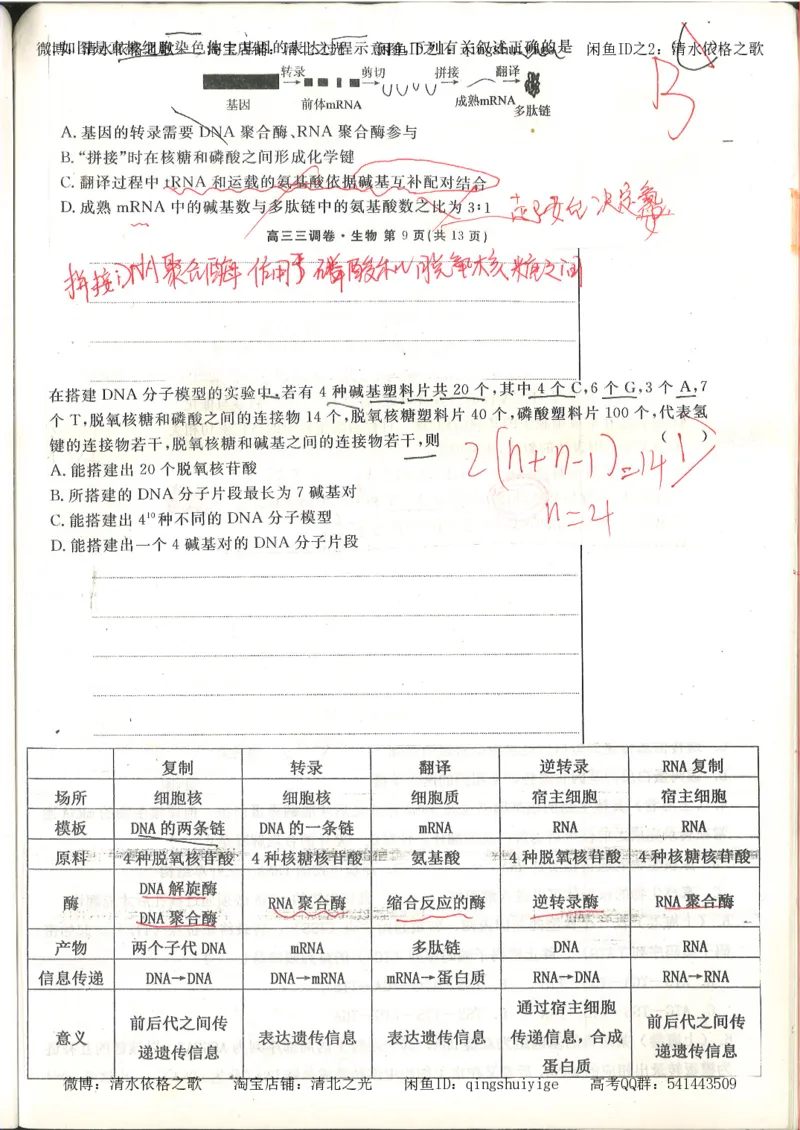 微博：清水依格之歌 淘宝店铺：清北之光 闲鱼ID之1：qingshuiyige 闲鱼ID之2：清水依格之歌
如图是真核细胞染色体上基因的表达过程示意图,下列有关叙述正确的是
转录 剪切 拼接 翻译
基因 前体mRNA 成熟mRNA 多肽链
B
A.基因的转录需要 DNA 聚合酶、RNA 聚合酶参与
B.“拼接”时在核糖和磷酸之间形成化学键
C.翻译过程中 tRNA 和运载的氨基酸依据碱基互补配对结合
D.成熟 mRNA 中的碱基数与多肽链中的氨基酸数之比为 3∶1
高三三调卷·生物 第 9 页(共 13 页)
拼接:DNA聚合酶 作用于磷酸和脱氧核糖之间
在搭建 DNA 分子模型的实验中,若有 4 种碱基塑料片共 20 个,其中 4 个 C,6 个 G,3 个 A,7
个 T,脱氧核糖和磷酸之间的连接物 14 个,脱氧核糖塑料片 40 个,磷酸塑料片 100 个,代表氢
键的连接物若干,脱氧核糖和碱基之间的连接物若干,则 ( )
2(n+n-1)=14
n=4
A.能搭建出 20 个脱氧核苷酸
B.所搭建的 DNA 分子片段最长为 7 碱基对
C.能搭建出 4¹⁰种不同的 DNA 分子模型
D.能搭建出一个 4 碱基对的 DNA 分子片段
复制 转录 翻译 逆转录 RNA 复制
场所 细胞核 细胞核 细胞质 宿主细胞 宿主细胞
模板 DNA 的两条链 DNA 的一条链 mRNA RNA RNA
原料 4 种脱氧核苷酸 4 种核糖核苷酸 氨基酸 4 种脱氧核苷酸 4 种核糖核苷酸
酶 DNA 解旋酶 DNA 聚合酶 RNA 聚合酶 缩合反应的酶 逆转录酶 RNA 聚合酶
产物 两个子代 DNA mRNA 多肽链 DNA RNA
信息传递 DNA→DNA DNA→mRNA mRNA→蛋白质 RNA→DNA RNA→RNA
意义 前后代之间传递遗传信息 表达遗传信息 表达遗传信息 通过宿主细胞传递信息，合成蛋白质 前后代之间传递遗传信息
微博：清水依格之歌 淘宝店铺：清北之光 闲鱼ID：qingshuiyige 高考QQ群：541443509